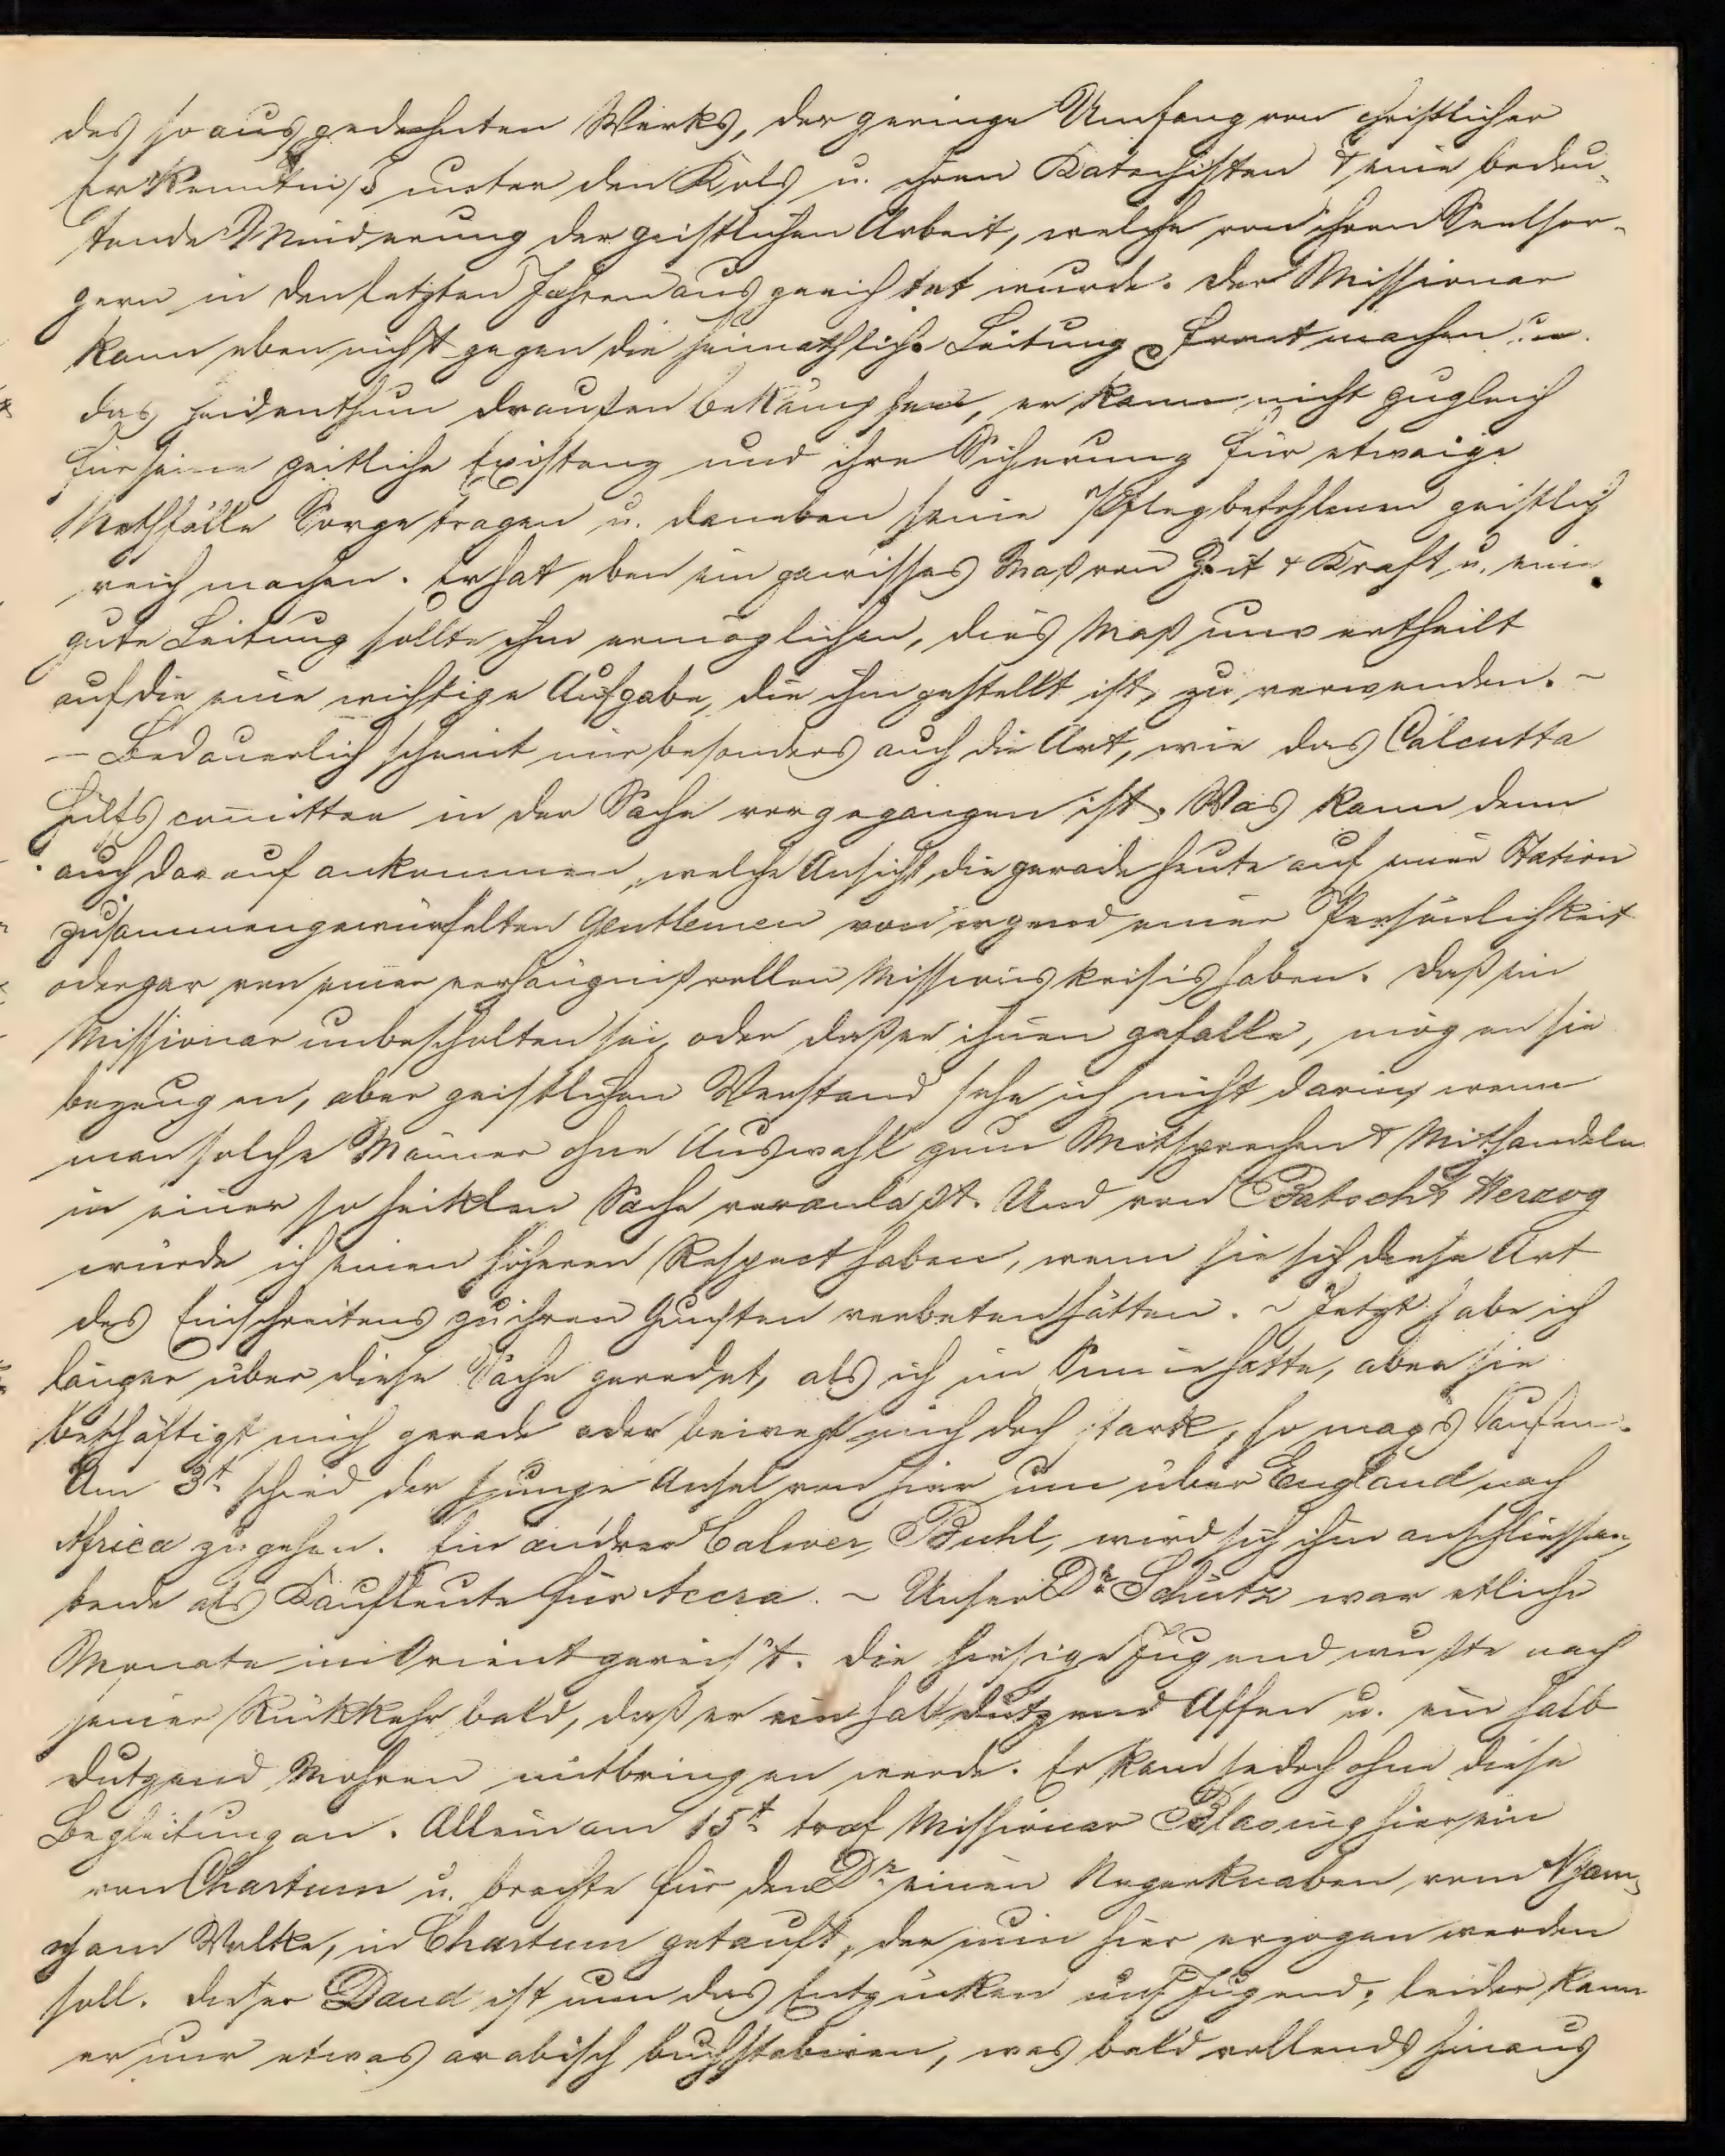 des so ausgedehnten Werks, der geringe Umfang von christlicher
Erkenntniß unter den Kols u. ihren Katechisten & eine bedeu-
tende Minderung der geistlichen Arbeit, welche von ihren Seelsor-
gern in den letzten Jahren ausgerichtet wurde. Der Missionar
kann eben nicht gegen die heimathliche Leitung Front machen u.
das Heidenthum draußen bekämpfen, er kann nicht zugleich
für seine zeitliche Existenz und ihre Sicherung für etwaige
Nothfälle Sorge tragen u. daneben seine Pflegbefohlenen geistlich
reich machen. Er hat eben ein gewisses Maß von Zeit & Kraft u. eine
gute Leitung sollte ihm ermöglichen, dies Maß unvertheilt
auf die eine wichtige Aufgabe, die ihm gestellt ist, zu verwenden. –
– Bedauerlich scheint mir besonders auch die Art, wie das Calcutta
Hülfscomittee in der Sache vorgegangen ist. Was kann denn
auch darauf ankommen, welche Ansicht die gerade heute auf einer Station
zusammengewürfelten Gentlemen von irgend einer Persönlichkeit
oder gar von einer verhängnißvollen Missionskrisis haben. Daß ein
Missionar unbescholten sei, oder daß er ihnen gefalle, mögen sie
bezeugen, aber geistlichen Verstand sehe ich nicht darin, wenn
man solche Männer ohne Auswahl zum Mitsprechen & Mithandeln
in einer so heiklen Sache veranlaßt. Und von Batsch & Herzog
würde ich einen höheren Respect haben, wenn sie sich diese Art
des Einschreitens zu ihren Gunsten verbeten hätten. – Jetzt habe ich
länger über diese Sache geredet, als ich im Sinne hatte, aber sie
beschäftigt mich gerade oder bewegt mich doch stark, so mag's laufen.
Am 3t. schied der junge Ansel von hier um über England nach
Africa zu gehen. Ein andrer Calwer, Buhl, wird sich ihm anschliessen,
beide als Kaufleute für Accra. – Unser Dr Schütz war etliche
Monate im Orient gereist. Die hiesige Jugend wußte nach
seiner Rückkehr bald, daß er ein halb dutzend Affen u. ein halb
dutzend Mohren mitbringen werde. Er kam jedoch ohne diese
Begleitung an. Allein am 15t traf Missionar Blasing hier ein
von Chartum u. brachte für den Dr einen Negerknaben, vom Njam-
njam Volke, in Chartum getauft, der nun hier erzogen werden
soll. Dieser Daud ist nun das Entzücken uns. Jugend; leider kann
er nur etwas arabisch buchstabiren, was bald vollends hinaus